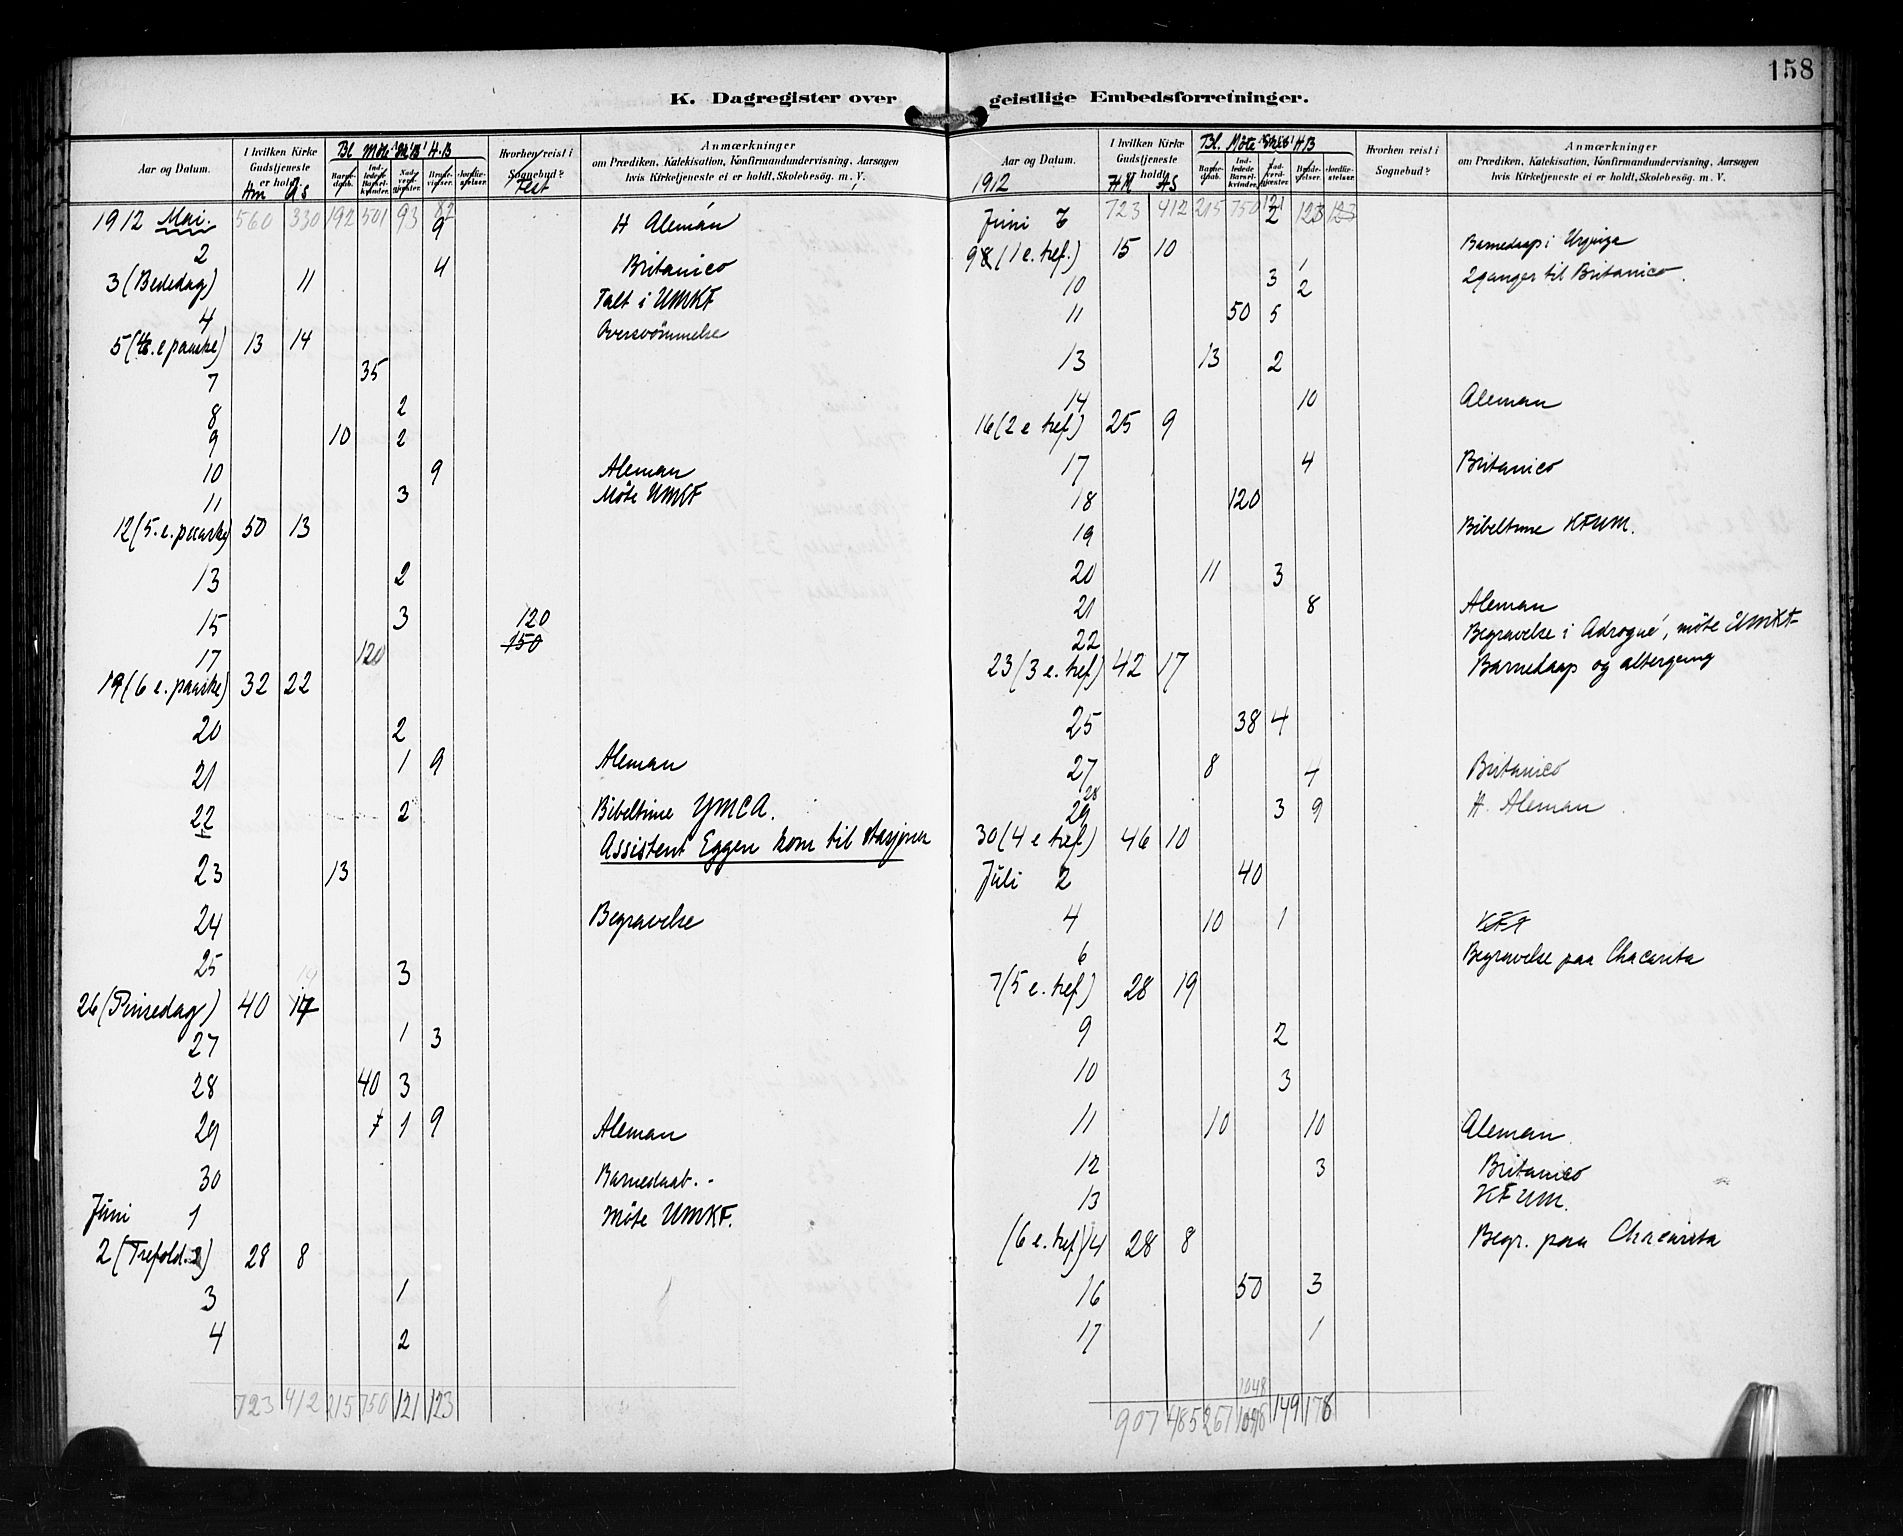 158
K. Dagregister over geistlige Embedsforretninger.
Aar og Datum. | I hvilken Kirke Gudstjeneste er holdt. Hm | S | Bl Möte Sk.B. H.B | Barnedaab. | Indledede Barselkvinder. | Nadverdgjester. | Brudevielser. | Jordfæstelser. | Hvorhen reist i Sognebud? Fest | Anmærkninger om Prædiken, Katekisation, Konfirmandundervisning, Aarsagen hvis Kirketjeneste ei er holdt, Skolebesøg. m. V.
1912 Mai. 560 330 192 501 93 87 9 H Alemán
2 4 Britanico
3 (Bededag) 11
4 Talt i UMKF
5 (4. e paaske) 13 14 Oversvömmelse
7 35
8 2
9 10 2
10 9 Aleman
11 3 Möte UMKF
12 (5. e. paaske) 50 13
13 2
15 3 120
17 120 150
19 (6 e. paaske) 32 22
20 2
21 1 9 Aleman
22 2 Bibeltime YMCA.
Assistent Eggen kom til stasjonen
23 13
24 Begravelse
25 3
26 (Pinsedag) 40 17
27 1 3
28 40 3
29 7 1 9 Aleman
30 Barnedaab.
Juni 1 Möte UMKF.
2 (Trefold.) 28 8
3 1
4 2
723 412 215 750 121 123
Aar og Datum. 1912 | I hvilken Kirke Gudstjeneste er holdt. HM | HS | Bl. Möte H B | Barnedaab. | Indledede Barselkvinder. | Nadverdgjester. | Brudevielser. | Jordfæstelser. | Hvorhen reist i Sognebud? | Anmærkninger om Prædiken, Katekisation, Konfirmandundervisning, Aarsagen hvis Kirketjeneste ei er holdt, Skolebesøg. m. V.
723 412 215 750 121 123 123
Juni 2
9 (1 e. tref.) 15 10 Barnedaap i Urquiza
10 3 2 2 ganger til Britanico.
11 50 5
13 13 2
14 10 Aleman
16 (2 e tref) 25 9
17 4 Britanico
18 120
19 Bibeltime KFUM.
20 11 3
21 8 Aleman
22 Begravelse i Adrogué, möte UMKF
23 (3 e. tref) 42 17 Barnedaap og altergang
25 38 4
27 8 4 Britanico
28
29 3 9 H. Aleman
30 (4 e tref) 46 10
Juli 2 40
4 10 1
6 Begravelse paa Chacarita
7 (5 e. tref) 28 19
9 2
10 3
11 10 10 Aleman
12 3 Britanico
13 KFUM.
(6 e. tref) 14 28 8 Begr. paa Chacarita
16 50 3
17 1
1048
907 485 267 149 178